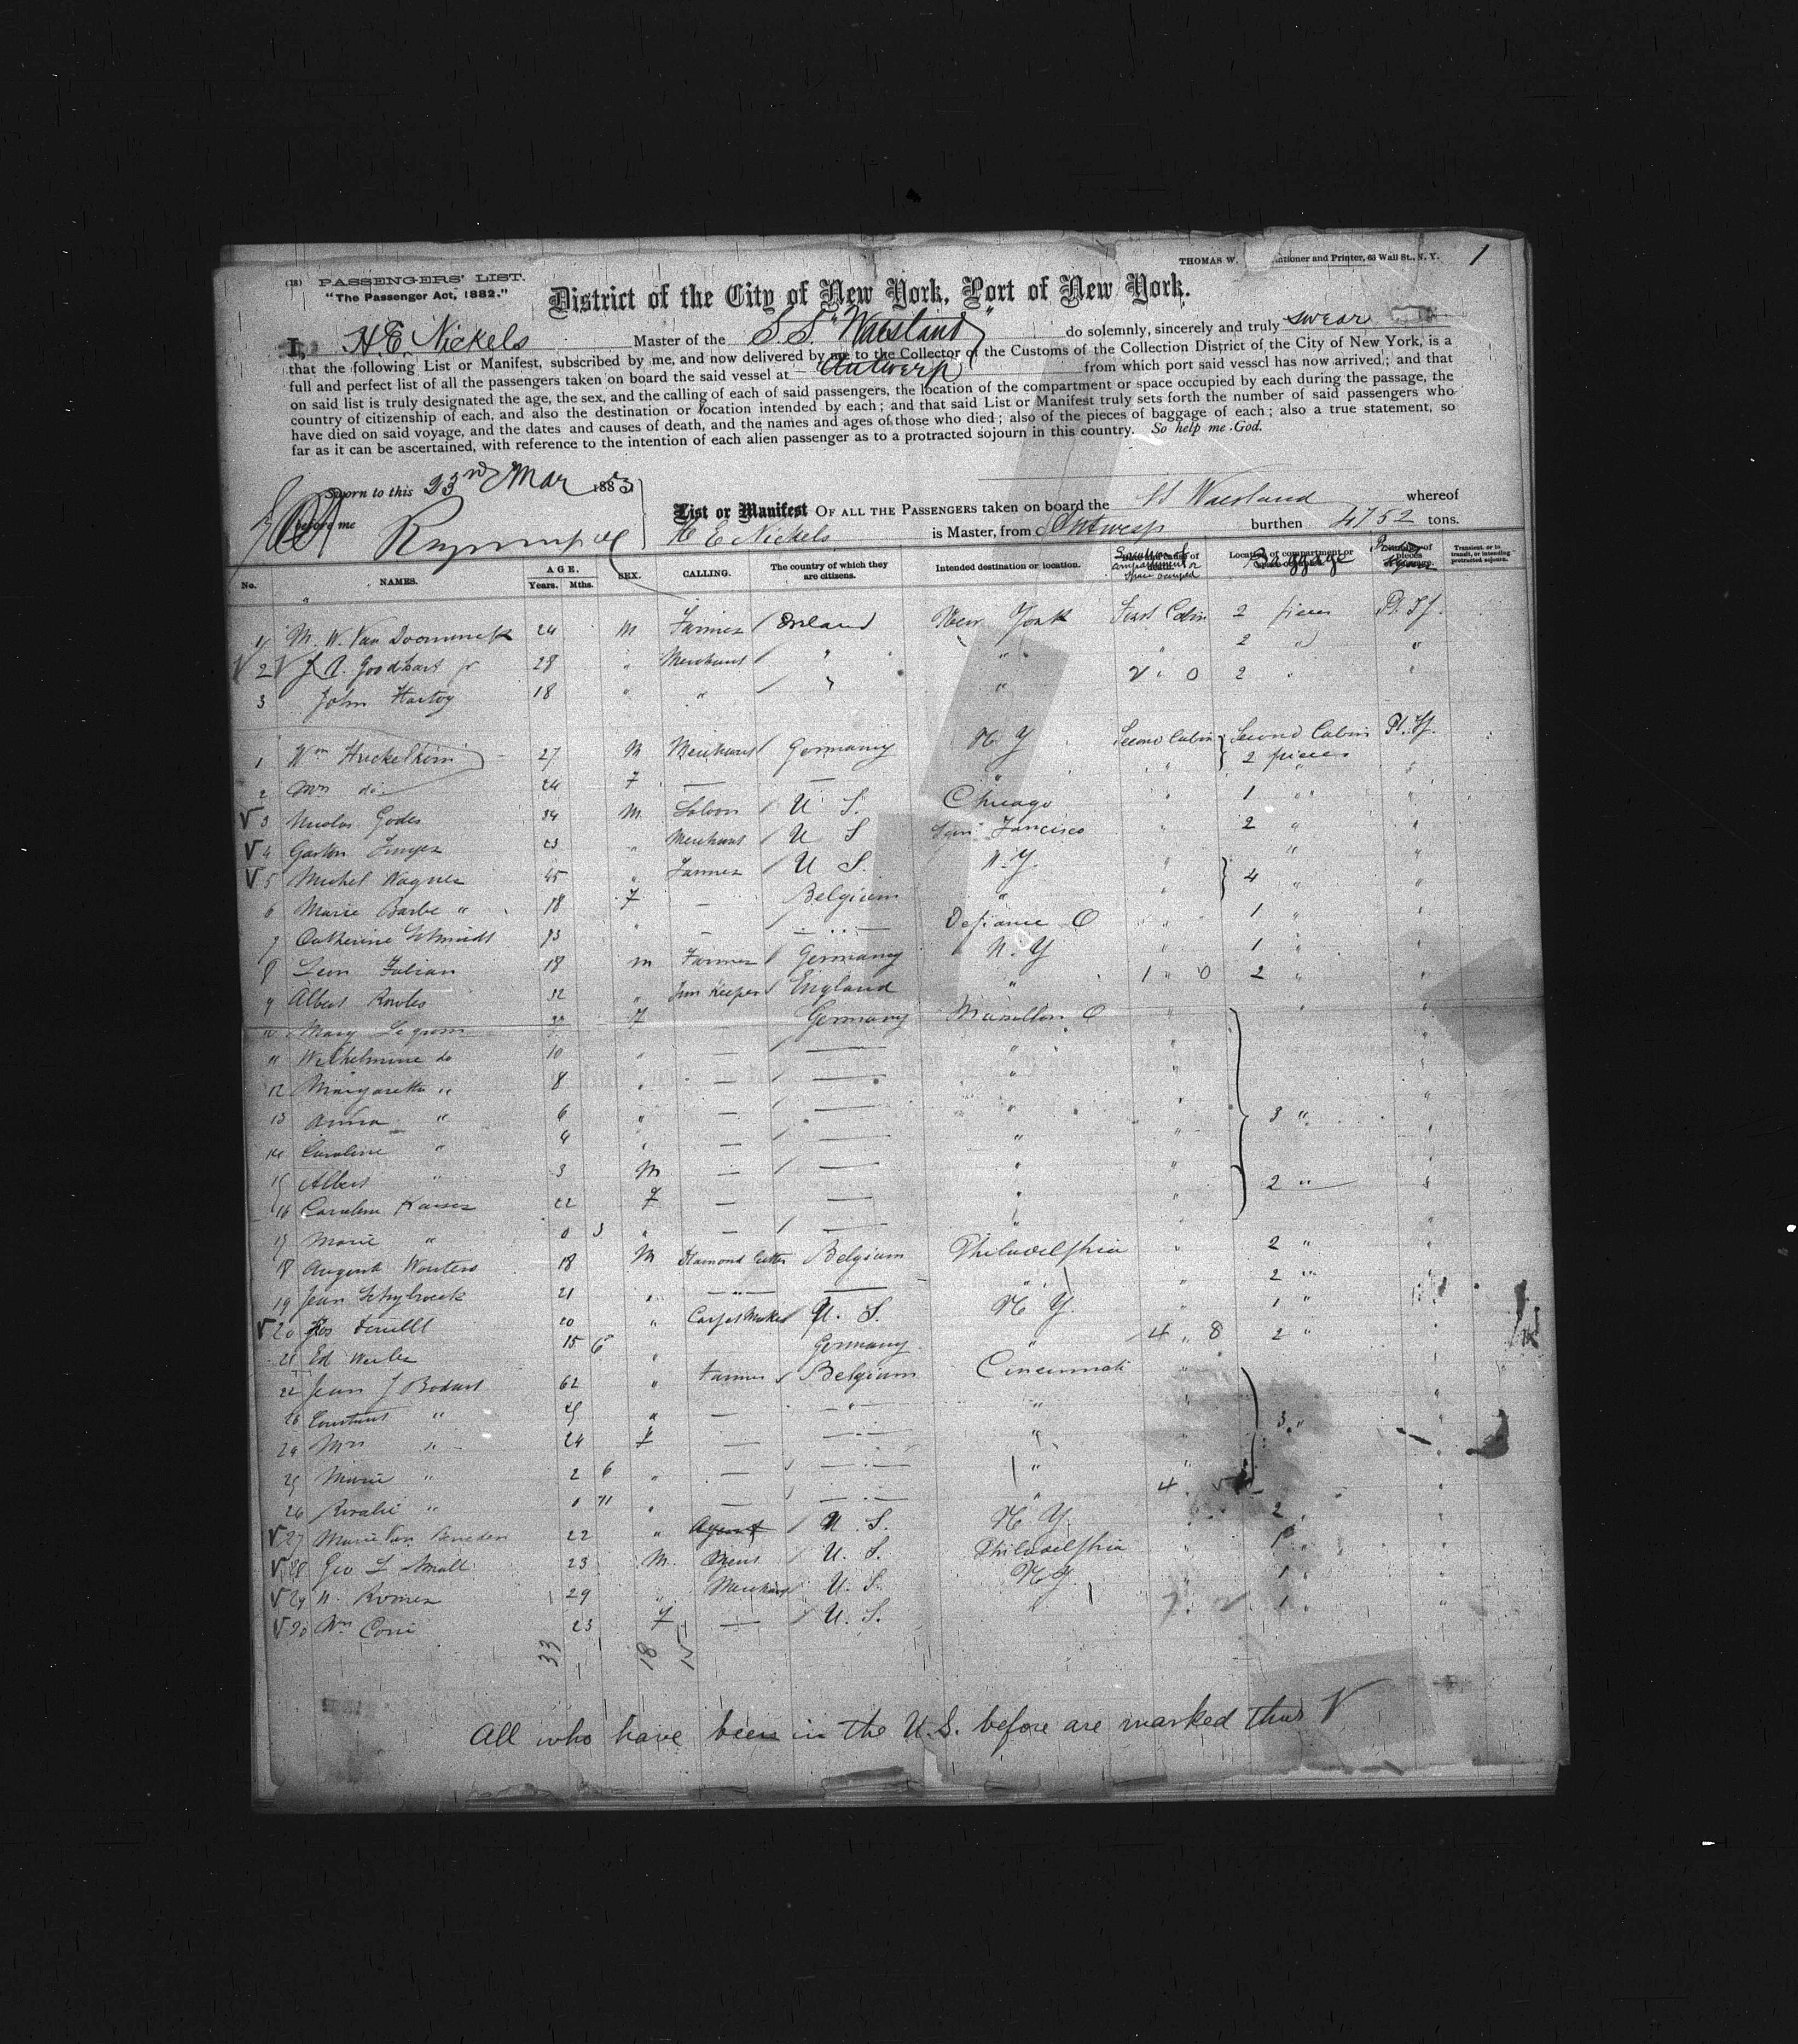 1
THOMAS W. Stationer and Printer, 63 Wall St., N. Y.
(18) PASSENGERS' LIST.
"The Passenger Act, 1882."
District of the City of New York, Port of New York.
I, H E. Nickels Master of the S.S. "Waesland" do solemnly, sincerely and truly swear
that the following List or Manifest, subscribed by me, and now delivered by me to the Collector of the Customs of the Collection District of the City of New York, is a
full and perfect list of all the passengers taken on board the said vessel at Antwerp from which port said vessel has now arrived; and that
on said list is truly designated the age, the sex, and the calling of each of said passengers, the location of the compartment or space occupied by each during the passage, the
country of citizenship of each, and also the destination or location intended by each; and that said List or Manifest truly sets forth the number of said passengers who
have died on said voyage, and the dates and causes of death, and the names and ages of those who died; also of the pieces of baggage of each; also a true statement, so
far as it can be ascertained, with reference to the intention of each alien passenger as to a protracted sojourn in this country. So help me God.
Sworn to this 23rd Mar 1883
before me
List or Manifest OF ALL THE PASSENGERS taken on board the SS Waesland whereof
H E Nickels is Master, from Antwerp burthen 4752 tons.
No. NAMES. AGE. Years. Mths. SEX. CALLING. The country of which they are citizens. Intended destination or location. Baggage Transient, or in transit, or intending protracted sojourn.
1 M. W. Van 24 M Farmer New York First Cabin 2 pieces Pt. Sj.
V 2 J. A. Goodhart jr 28 " Merchant " " " 2 " "
3 John Hartog 18 " " " " 2 " 0 2 "
1 Wm Huckelheim 27 M Merchant Germany N Y Second Cabin Second Cabin Pt. Sj.
2 Mrs do 24 F — — " " 2 pieces "
V 3 Nicolas Godes 34 M Saloon U S. Chicago " 1 " "
V 4 Gaston 23 " Merchant U S San Fancisco " 2 " "
V 5 Michel Wagner 45 " Farmer U S. N. Y. " 4 " "
6 Marie Barbe " 18 F — Belgium " " " "
7 Catherine Schmidt 13 " — — Defiance O " 1 " "
8 Leon Fabian 18 m Farmer Germany N. Y " 1 " "
9 Albert Rowles 32 " Inn Keeper England " 1 " 0 2 " "
10 Mary 37 F Germany Massillon O " " "
11 Wilhelmine do 10 " — — " " "
12 Margaretha " 8 " — — " " "
13 Anna " 6 " — — " 3 " "
14 Caroline " 4 " — — " " "
15 Albert " 3 M — — " " "
16 Caroline Kaiser 22 F — — " " 2 " "
17 Marie " 0 3 " — — " " "
18 August Wouters 18 M Diamond Cutter Belgium Philadelphia " 2 " "
19 Jean 21 " — " — — " " 2 " "
V 20 20 " Carpet Maker U. S. N Y. " 1 " "
21 Ed 15 6 " Germany " 4 " 8 2 " "
22 Jean J Bodart 62 " Farmer Belgium Cincinnati " "
23 Constant " " — — " " 3 " "
24 Mrs " 24 F — — " "
25 Marie " 2 6 " — — " " "
26 Rosalie " 11 " — — " 4 . "
V 27 Marie Van 22 " U. S. N Y. " 2 "
V 28 Geo L Small 23 M. U. S. Philadelphia " 1 " "
V 29 N. Romer 29 " Merchant U S. N Y. 1 "
V 30 Mrs 23 F — U. S. " 7 . 1 " "
33 18 15
All who have been in the U.S. before are marked thus V